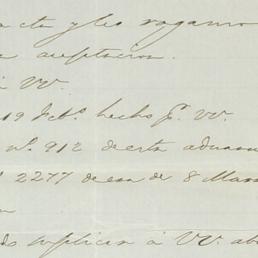 cta y les rogamos
aceptacion.
á VV.
19 Feb.º hecho p.r VV.
n.º 912 de esta aduana
2277 de esa de 8 Marzo
suplican á VV. abo